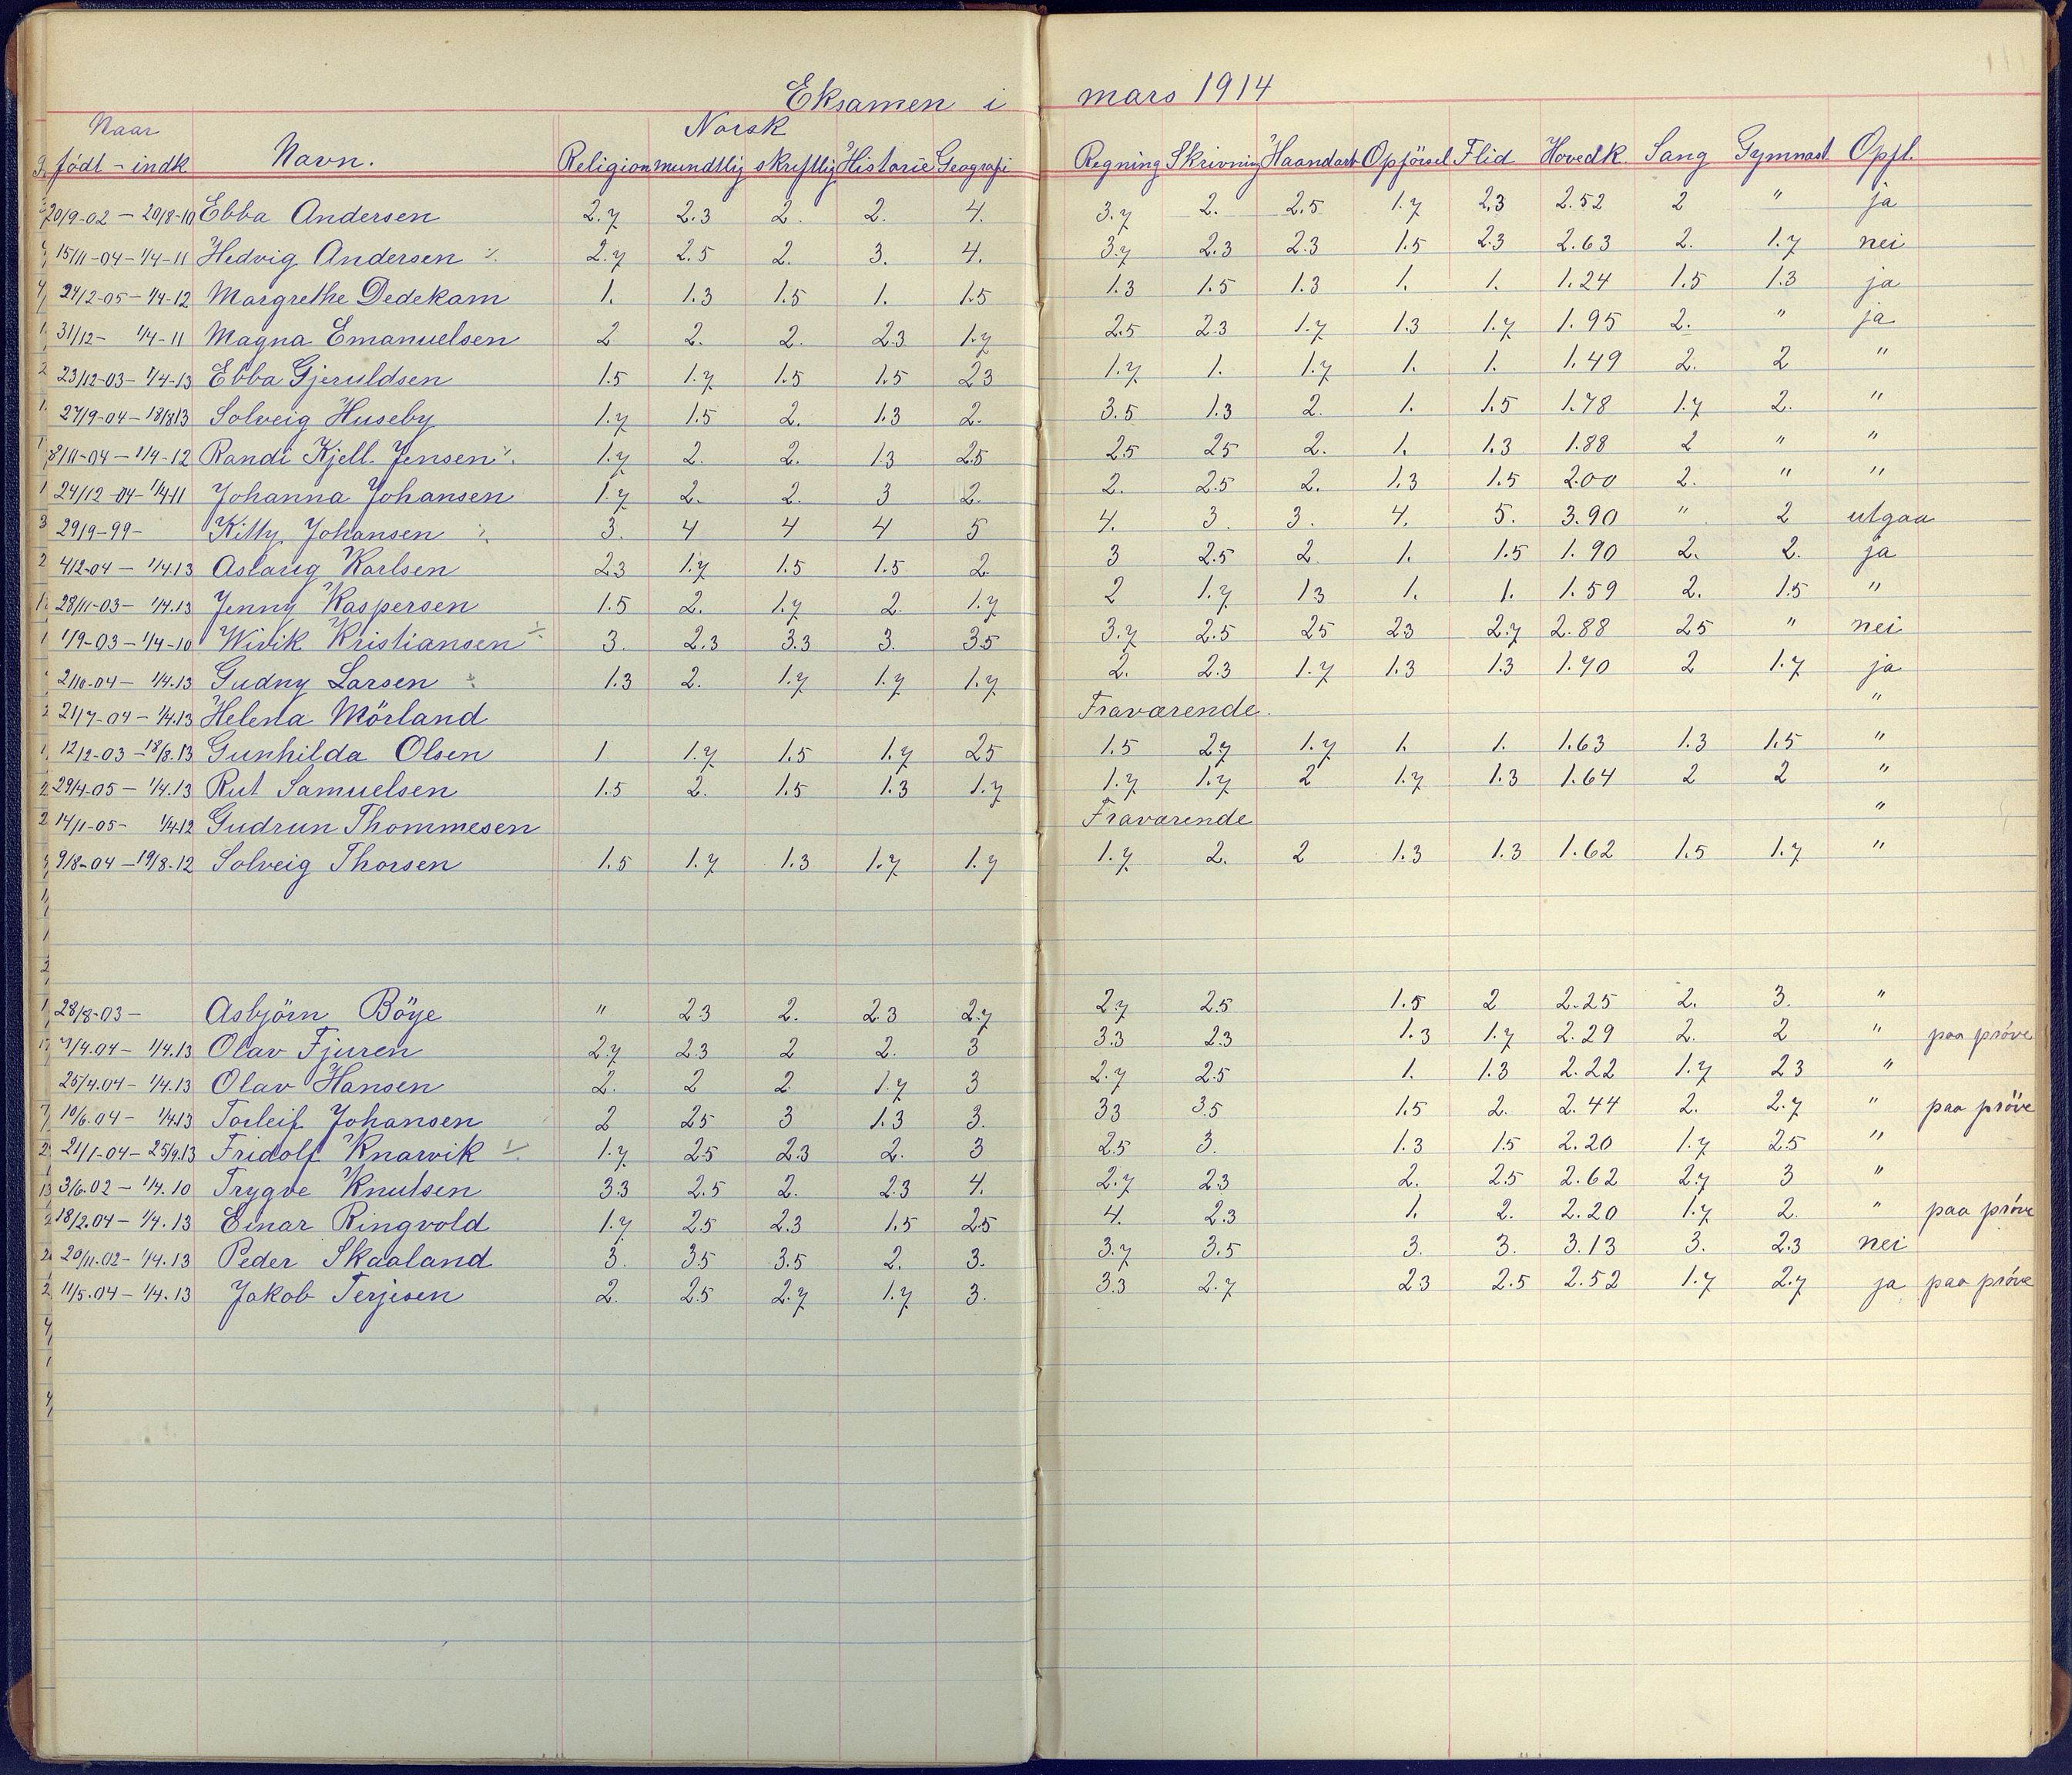 Eksamen i mars 1914
Naar Norsk
födt - indk Navn. Religion mundtlig skriftlig Historie Geografi Regning Skrivning Haandarb Opförsel Flid Hovedk. Sang Gymnast. Oppl.
20/9-02 - 20/8-10 Ebba Andersen 2.7 2.3 2. 2. 4. 3.7 2. 2.5 1.7 2.3 2.52 2 " ja
15/11-04 - 1/4-11 Hedvig Andersen ·/. 2.7 2.5 2. 3. 4. 3.7 2.3 2.3 1.5 2.3 2.63 2. 1.7 nei
24/2-05 - 1/4-12 Margrethe Dedekam 1. 1.3 1.5 1. 1.5 1.3 1.5 1.3 1. 1. 1.24 1.5 1.3 ja
31/12- 1/4-11 Magna Emanuelsen 2 2. 2. 2.3 1.7 2.5 2.3 1.7 1.3 1.7 1.95 2. " ja
23/12-03 - 1/4-13 Ebba Gjeruldsen 1.5 1.7 1.5 1.5 23 1.7 1. 1.7 1. 1. 1.49 2. 2 "
27/9-04 - 18/8 13 Solveig Huseby 1.7 1.5 2. 1.3 2. 3.5 1.3 2. 1. 1.5 1.78 1.7 2. "
8/11-04 - 1/4-12 Randi Kjell. Jensen ·/. 1.7 2. 2. 1.3 2.5 2.5 25 2. 1. 1.3 1.88 2 " "
24/12-04 - 1/4 11 Johanna Johansen 1.7 2. 2. 3 2. 2. 2.5 2. 1.3 1.5 2.00 2. " "
29/9-99- Kitty Johansen ·/. 3. 4 4 4 5 4. 3. 3. 4. 5. 3.90 " 2 utgaa
4/2-04 - 1/4.13 Aslaug Karlsen 2.3 1.7 1.5 1.5 2 3 2.5 2. 1. 1.5 1.90 2. 2. ja
28/11-03 - 1/4.13 Jenny Kaspersen 1.5 2. 1.7 2. 1.7 2 1.7 1.3 1. 1. 1.59 2. 1.5 "
1/9-03 - 1/4-10 Wivik Kristiansen ·/. 3. 2.3 3.3 3. 3.5 3.7 2.5 25 23 2.7 2.88 25 " nei
2/10-04 - 1/4.13 Gudny Larsen ·/. 1.3 2. 1.7 1.7 1.7 2. 2.3 1.7 1.3 1.3 1.70 2 1.7 ja
21/7-04 - 1/4.13 Helena Mörland Fraværende. "
12/12-03 - 18/8.13 Gunhilda Olsen 1 1.7 1.5 1.7 25 1.5 27 1.7 1. 1. 1.63 1.3 1.5 "
29/4-05 - 1/4.13 Rut Samuelsen 1.5 2. 1.5 1.3 1.7 1.7 1.7 2 1.7 1.3 1.64 2 2 "
14/1-05- 1/4.12 Gudrun Thommesen Fraværende "
9/8-04 - 19/8-12 Solveig Thorsen 1.5 1.7 1.3 1.7 1.7 1.7 2. 2 1.3 1.3 1.62 1.5 1.7 "
28/8-03 - Asbjörn Böye " 2.3 2. 2.3 2.7 2.7 2.5 1.5 2 2.25 2. 3. "
7/4.04 - 1/4.13 Olav Fjuren 2.7 2.3 2 2. 3 3.3 2.3 1.3 1.7 2.29 2. 2 " paa pröve
25/4.04 - 1/4.13 Olav Hansen 2. 2 2 1.7 3 2.7 2.5 1. 1.3 2.22 1.7 23 "
10/6.04 - 1/4.13 Torleif Johansen 2 25 3 1.3 3. 33 3.5 1.5 2. 2.44 2. 2.7 " paa pröve
21/1-04 - 25/9.13 Fridolf Knarvik ·/. 1.7 2.5 2.3 2. 3 2.5 3. 1.3 1.5 2.20 1.7 2.5 "
3/6.02 - 1/4.10 Trygve Knutsen 33 2.5 2. 2.3 4. 2.7 2.3 2. 2.5 2.62 2.7 3 "
18/2.04 - 1/4.13 Einar Ringvold 1.7 2.5 2.3 1.5 25 4. 2.3 1. 2. 2.20 1.7 2. " paa pröve
20/11.02 - 1/4.13 Peder Skaaland 3. 3.5 3.5 2. 3. 3.7 3.5 3. 3. 3.13 3. 2.3 nei
11/5.04 - 1/4.13 Jakob Terjesen 2. 2.5 2.7 1.7 3. 3.3 2.7 2.3 2.5 2.52 1.7 2.7 ja paa pröve